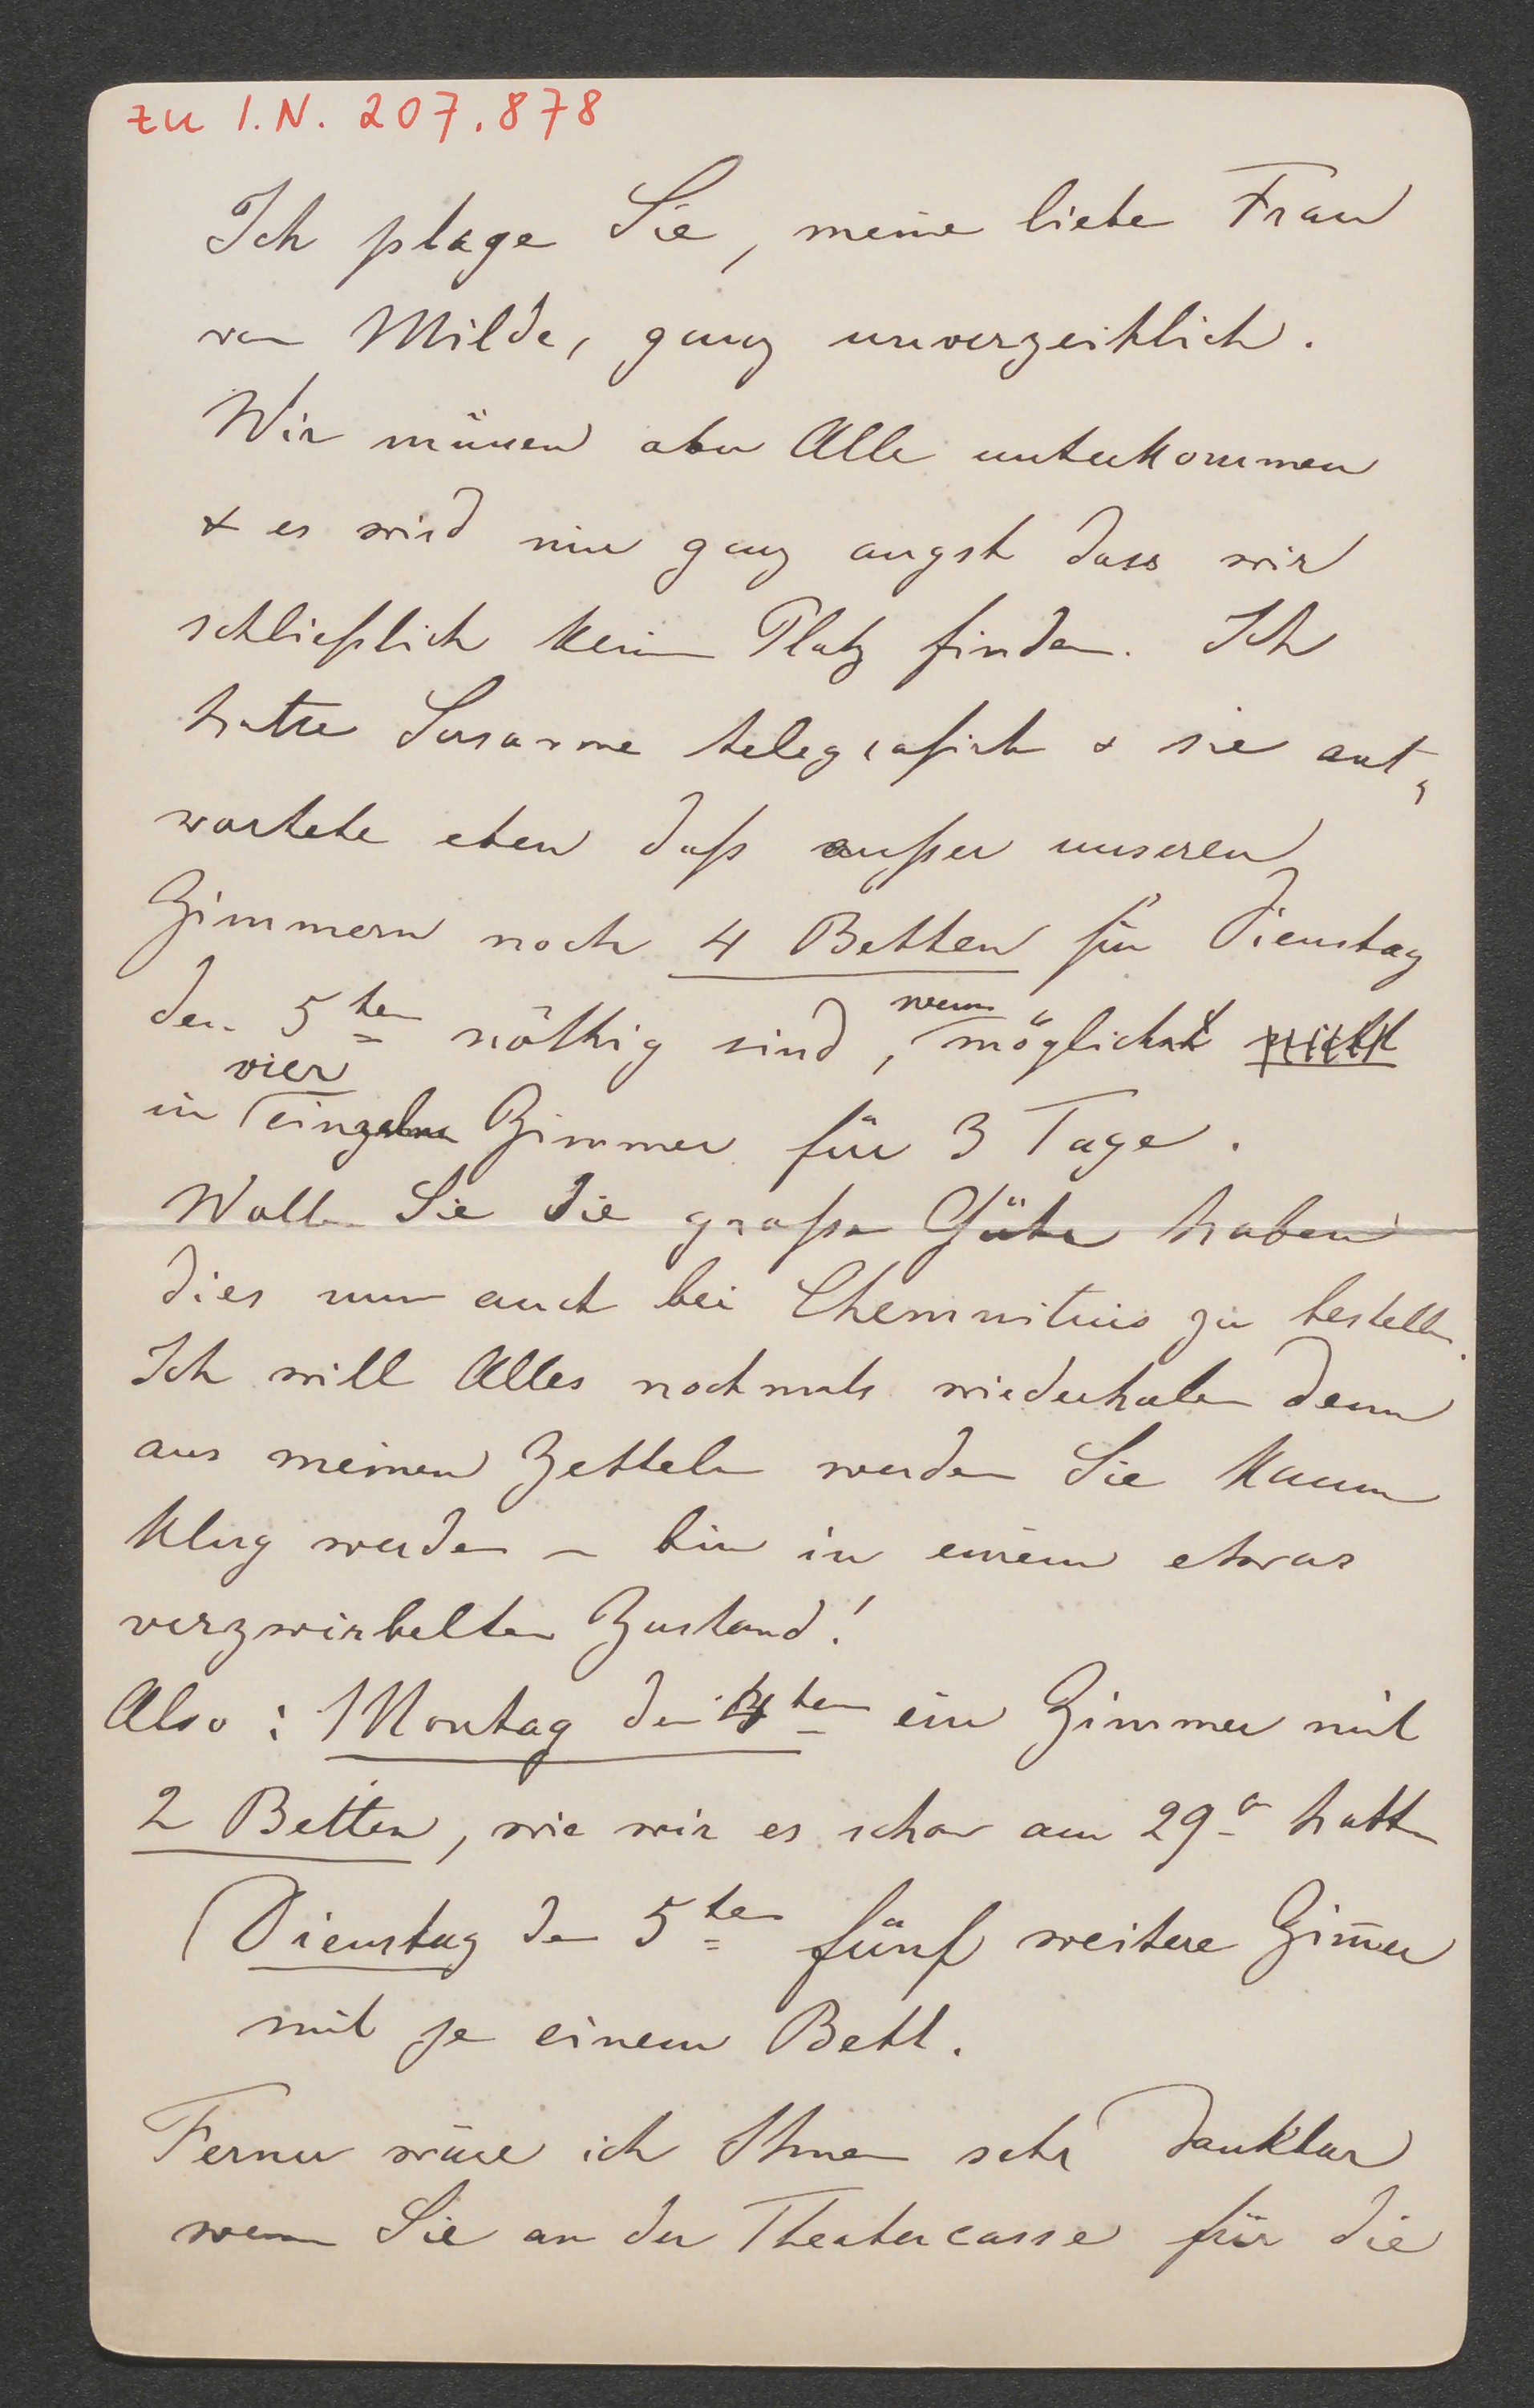 zu I.N. 207.878
Ich plage Sie, meine liebe Frau
von Milde, ganz unverzeihlich.
Wir müssen aber Alle unterkommen
& es wird mir ganz angst dass wir
schließlich kein Platz finden. Ich
hatte Susanne telegrafirt & sie ant-
wortete eben daß außer unseren
Zimmern noch 4 Betten für Dienstag
den 5ten nöthig sind, wenn möglich
in vier einzeln Zimmer für 3 Tage.
Wollen Sie die große Güte haben
dies nun auch bei Chemnitius zu bestellen.
Ich will Alles nochmals wiederholen denn
aus meinen Zetteln werden Sie kaum
klug werden – bin in einem etwas
verzwirbelten Zustand!
Also: Montag den 4ten ein Zimmer mit
2 Betten, wie wir es schon am 29n hatten
(Dienstag den 5ten fünf weitere Zim̅er
mit je einem Bett.
Ferner wäre ich Ihnen sehr dankbar
wenn Sie an der Theatercasse für die